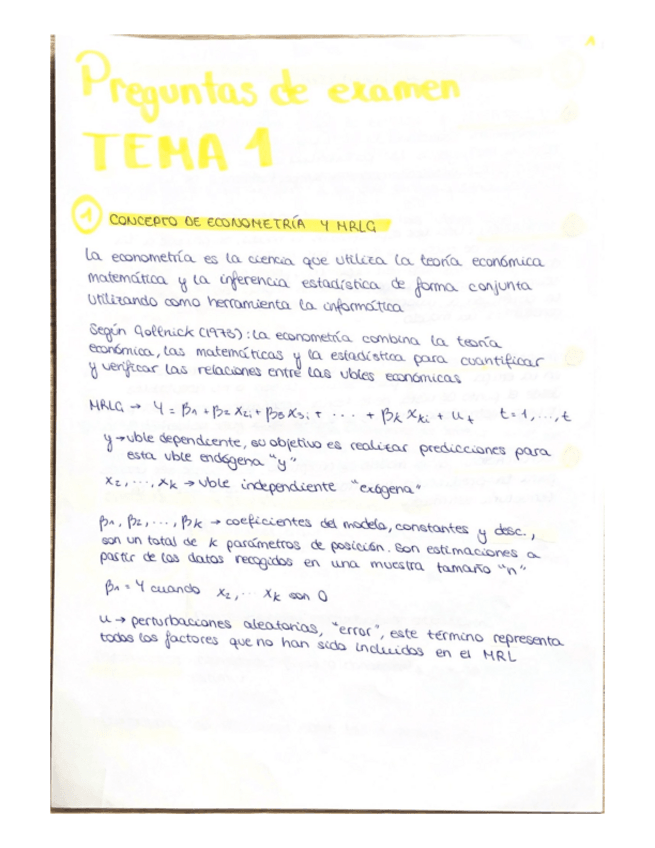 1
Preguntas de examen
TEMA 1
1 CONCEPTO DE ECONOMETRÍA Y MRLG
La econometría es la ciencia que utiliza la teoría económica
matemática y la inferencia estadística de forma conjunta
utilizando como herramienta la informática
Según Gollnick (1973): la econometría combina la teoría
económica, las matemáticas y la estadística para cuantificar
y verificar las relaciones entre las vbles económicas
MRLG → Y = β1 + β2 X2i + β3 X3i + ... + βk Xki + ut t=1,...,t
y → vble dependiente, su objetivo es realizar predicciones para
esta vble endógena "y"
x2, ..., xk → vble independiente "exógena"
β1, β2, ..., βk → coeficientes del modelo, constantes y desc.,
son un total de k parámetros de posición. Son estimaciones a
partir de los datos recogidos en una muestra tamaño "n"
β1 = Y cuando x2, ... xk son 0
u → perturbaciones aleatorias, "error", este término representa
todos los factores que no han sido incluidos en el MRL